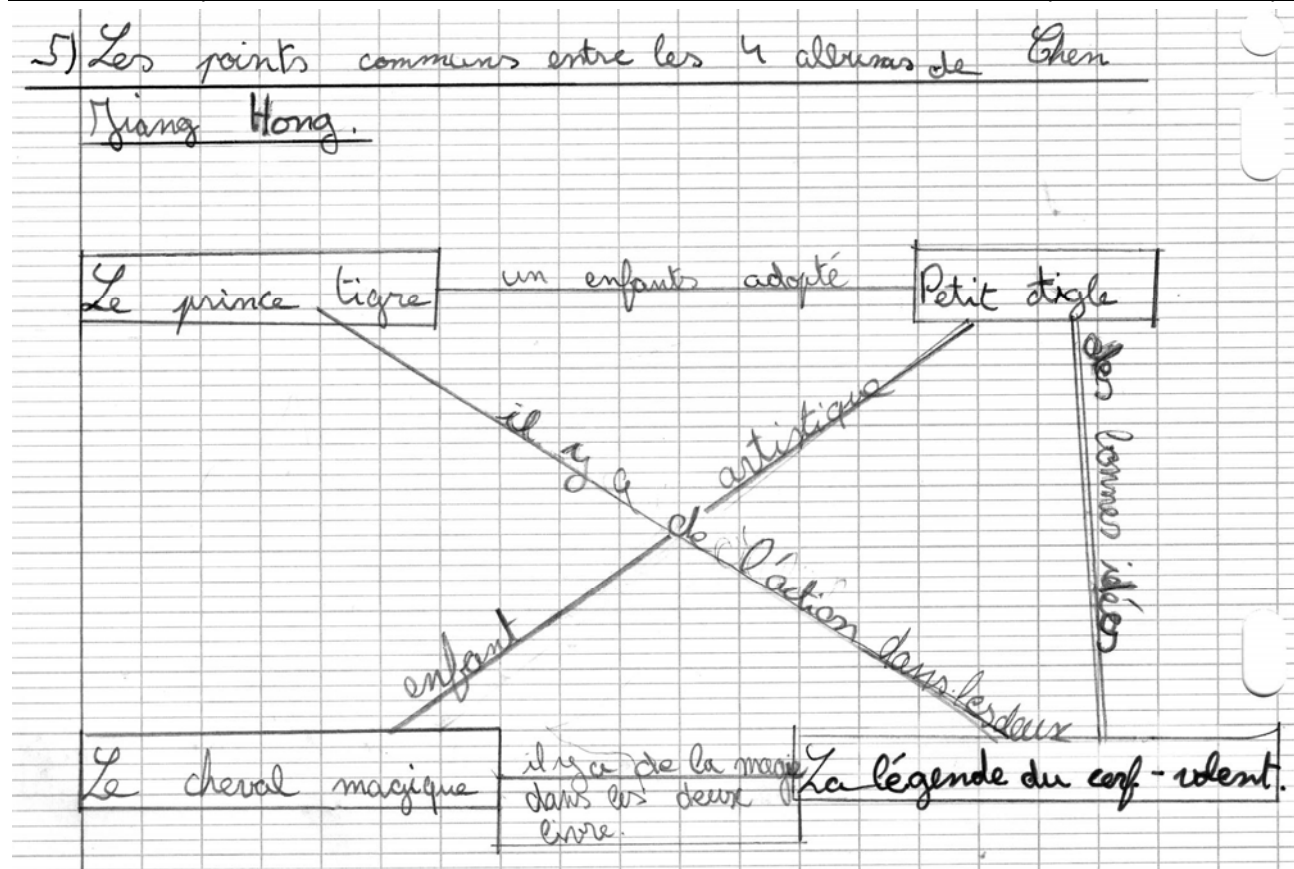 5) Les points communs entre les 4 albums de Chen
Jiang Hong.
Le prince tigre
un enfants adopté
Petit aigle
il y a de l'action dans les deux
enfant artistique
des bonnes idées
Le cheval magique
il y a de la magie
dans les deux
livre.
La légende du cerf-volent.